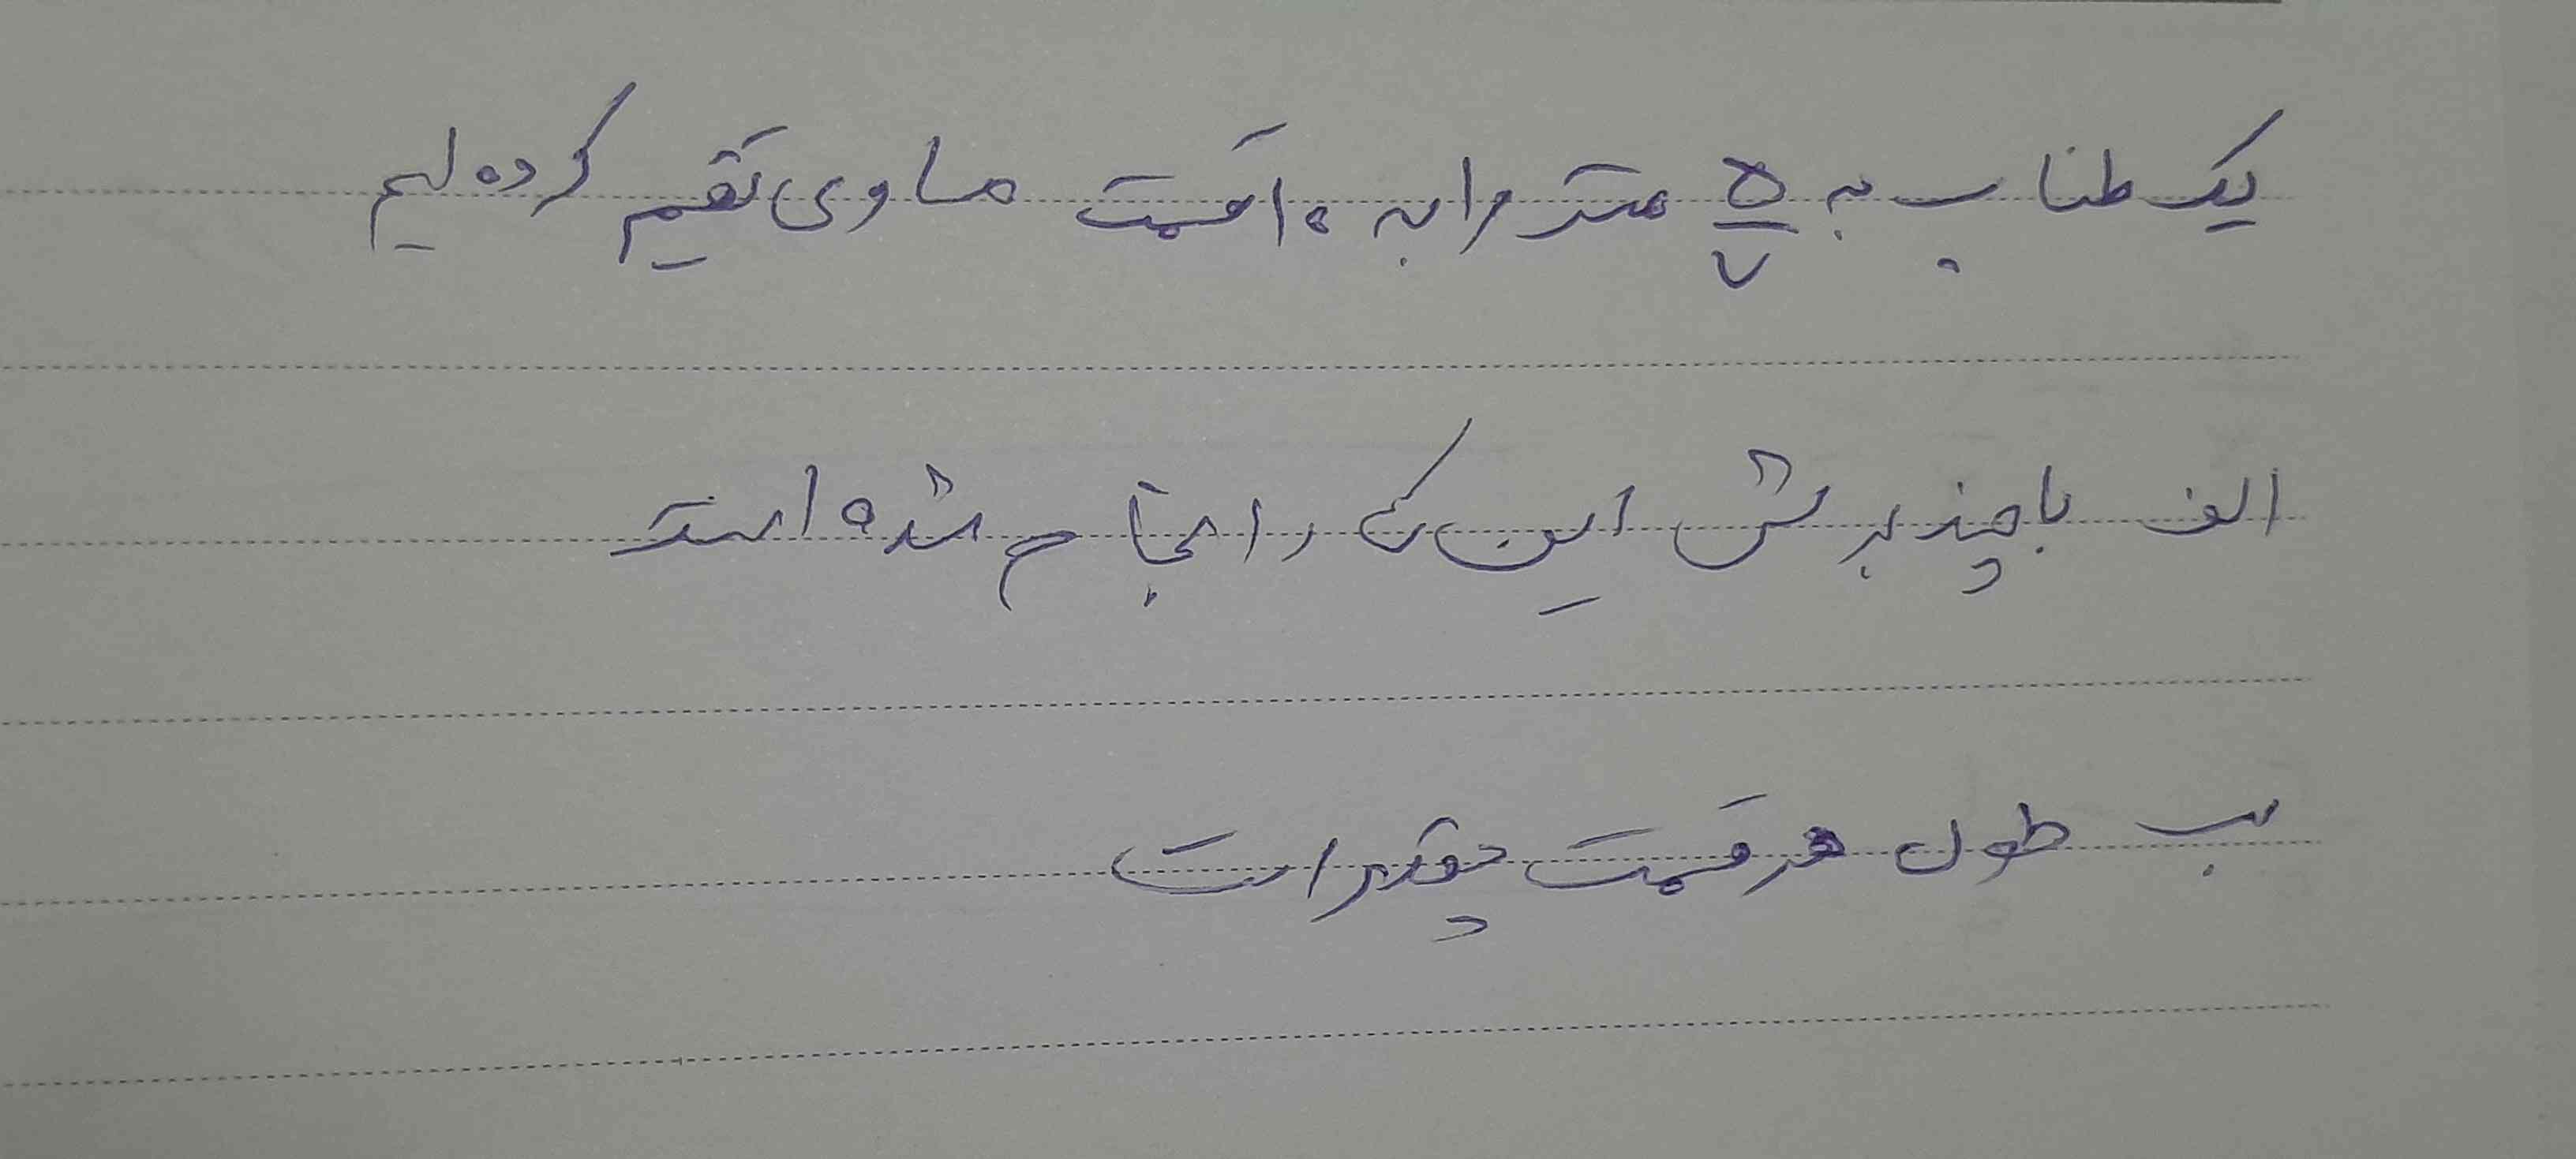 یک طناب به ۵/۷ متر را به ۱۰ قسمت مساوی تقسیم کرده ایم
الف با چند برش این کار انجام شده است
ب طول هر قسمت چقدر است